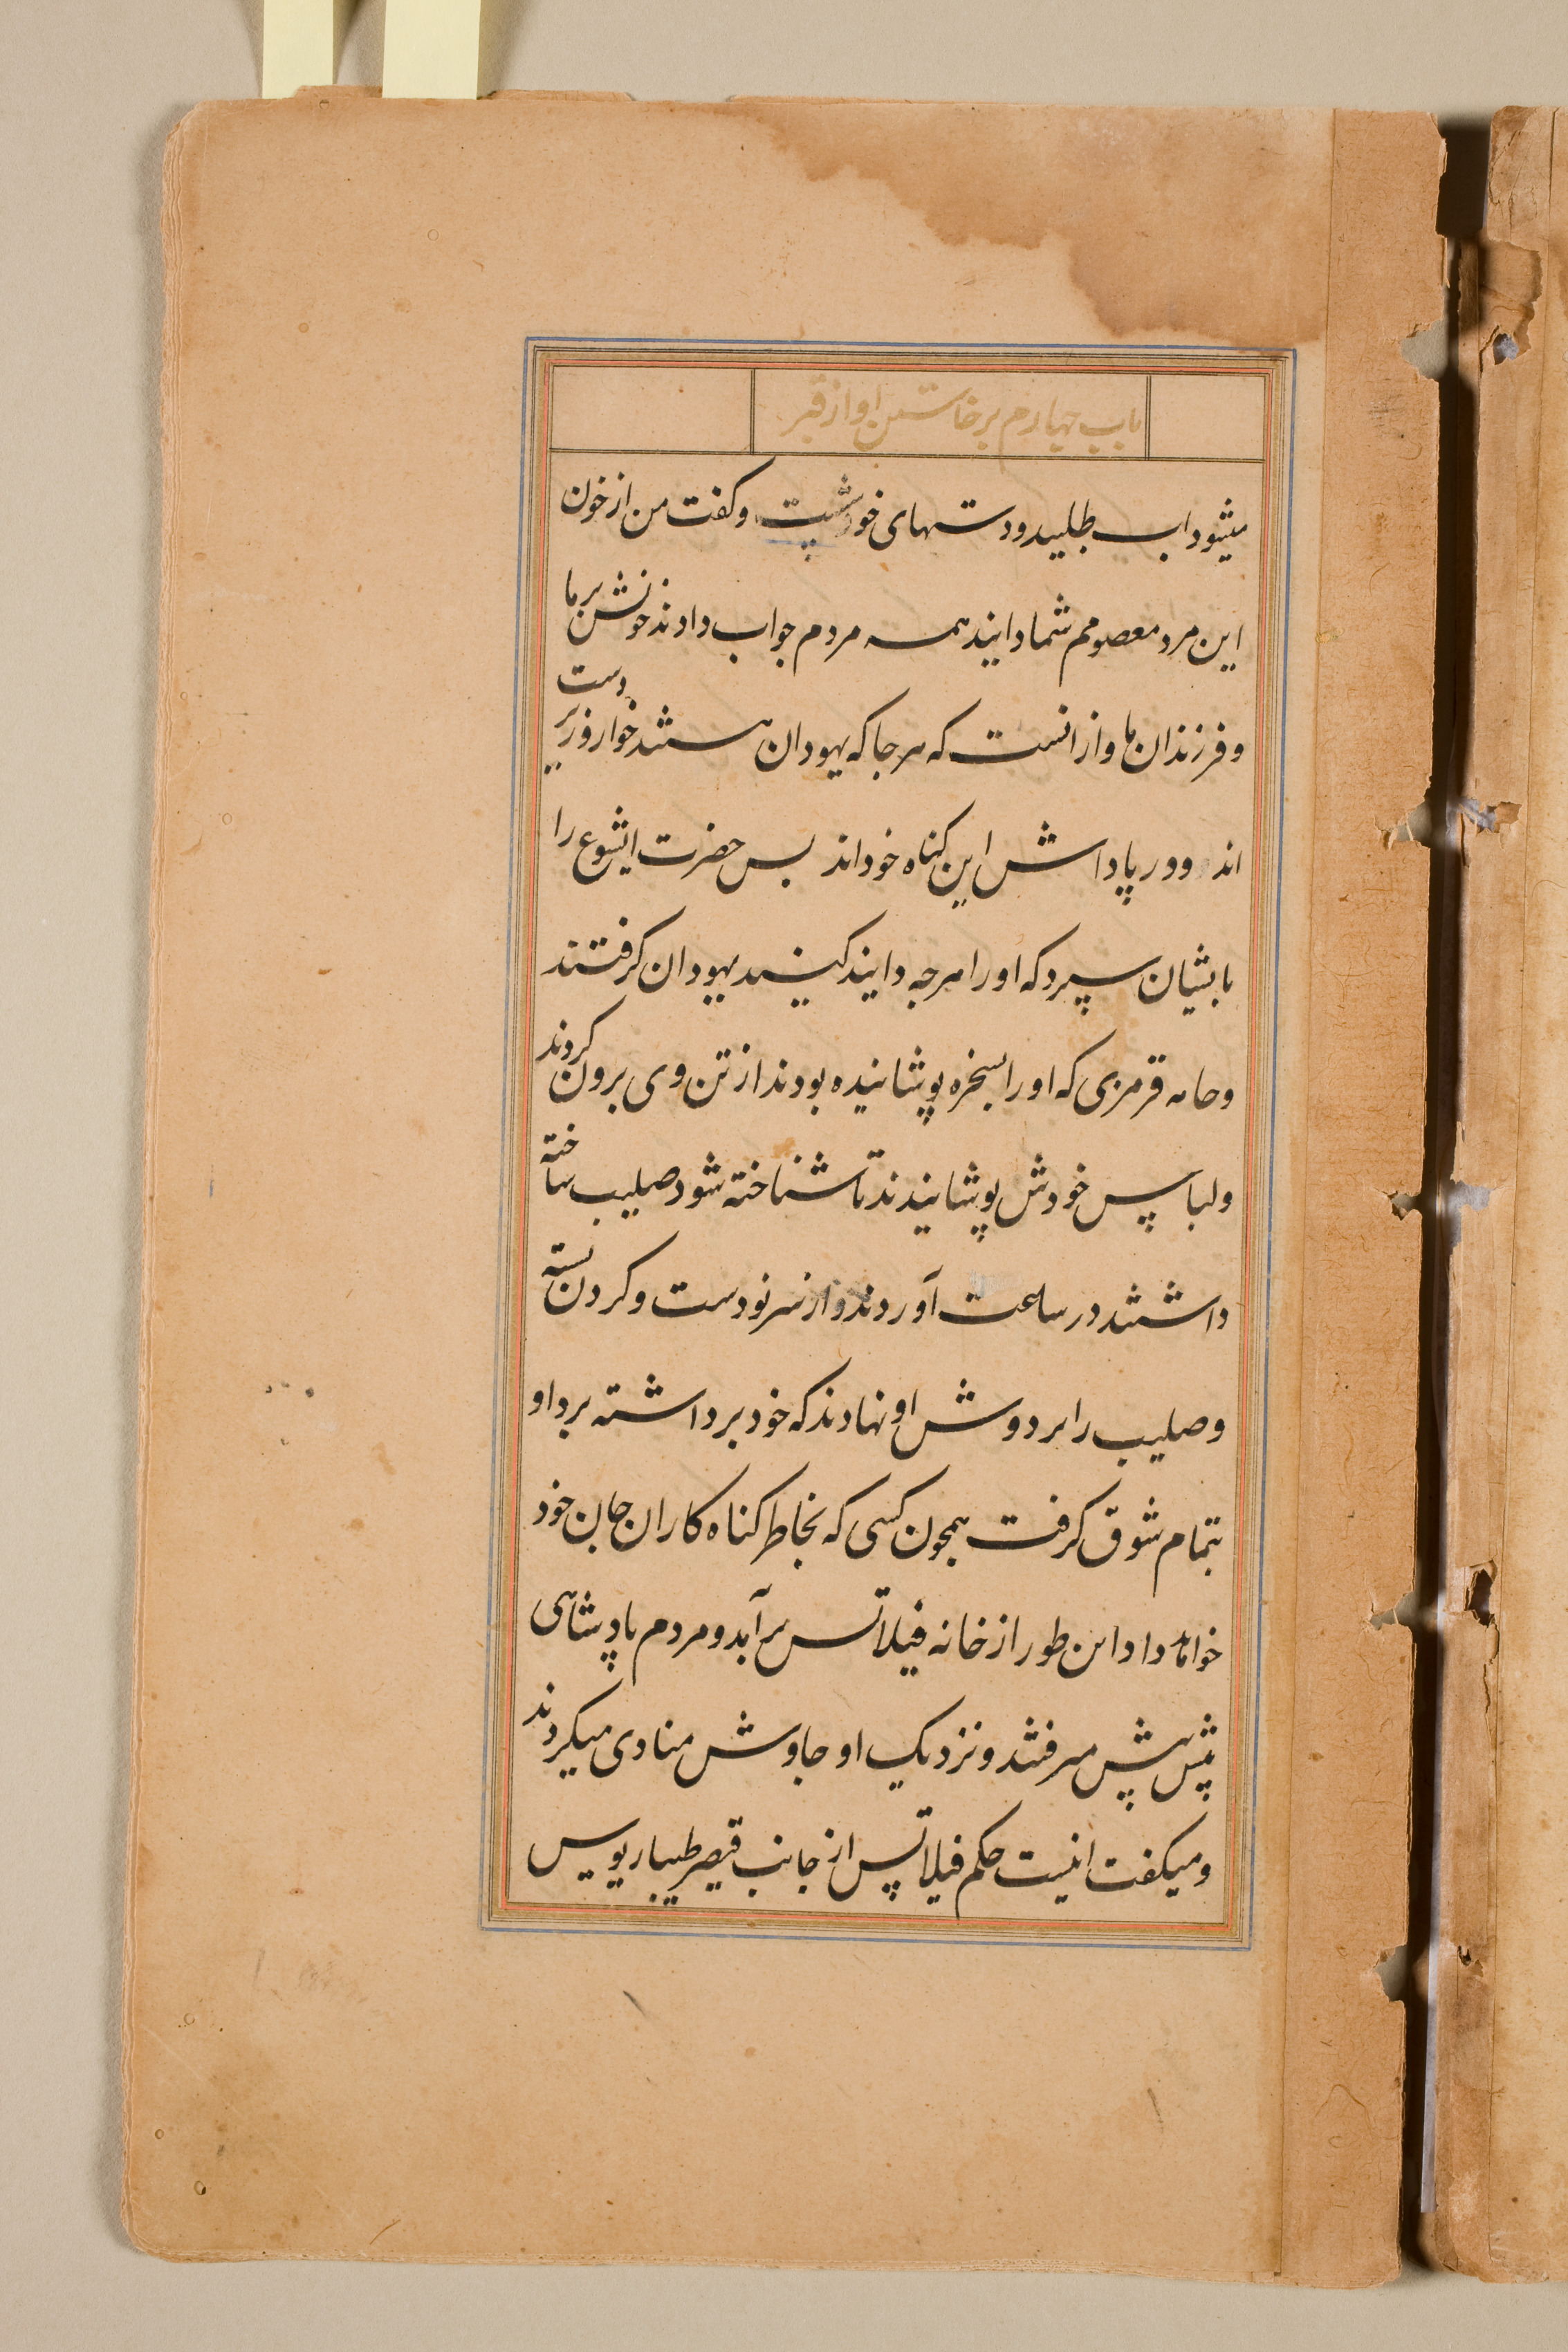 باب چهارم برخاستن او از قبر
میشود اب طلبید و دستهای خود شست و کفت من از خون
این مرد معصومم شما دانید همه مردم جواب دادند خونش بر ما
و فرزندان ما و از انست که هر جا که یهودان هستند خوار و زیر دست
اند و در پاداش این کناه خود اند پس حضرت ایشوع را
بایشان سپرد که او را هر چه دانید کنید یهودان کرفتند
و جامه قرمزی که او را بسخره پوشانیده بودند از تن وی برون کردند
و لباس خودش پوشانیدند تا شناخته شود صلیب ساخته
داشتند در ساعت آوردند و از سر نو دست و کردن بسته
و صلیب را بر دوش او نهادند که خود برداشته برد او
بتمام شوق کرفت همچون کسی که بخاطر کناه کاران جان خود
خواهد داد این طور از خانه فیلاتس بر آمد و مردم پادشاهی
پیش پیش میرفتند و نزدیک او جاوش منادی میکردند
و میکفت اینست حکم فیلاتس از جانب قیصر طیباریوس